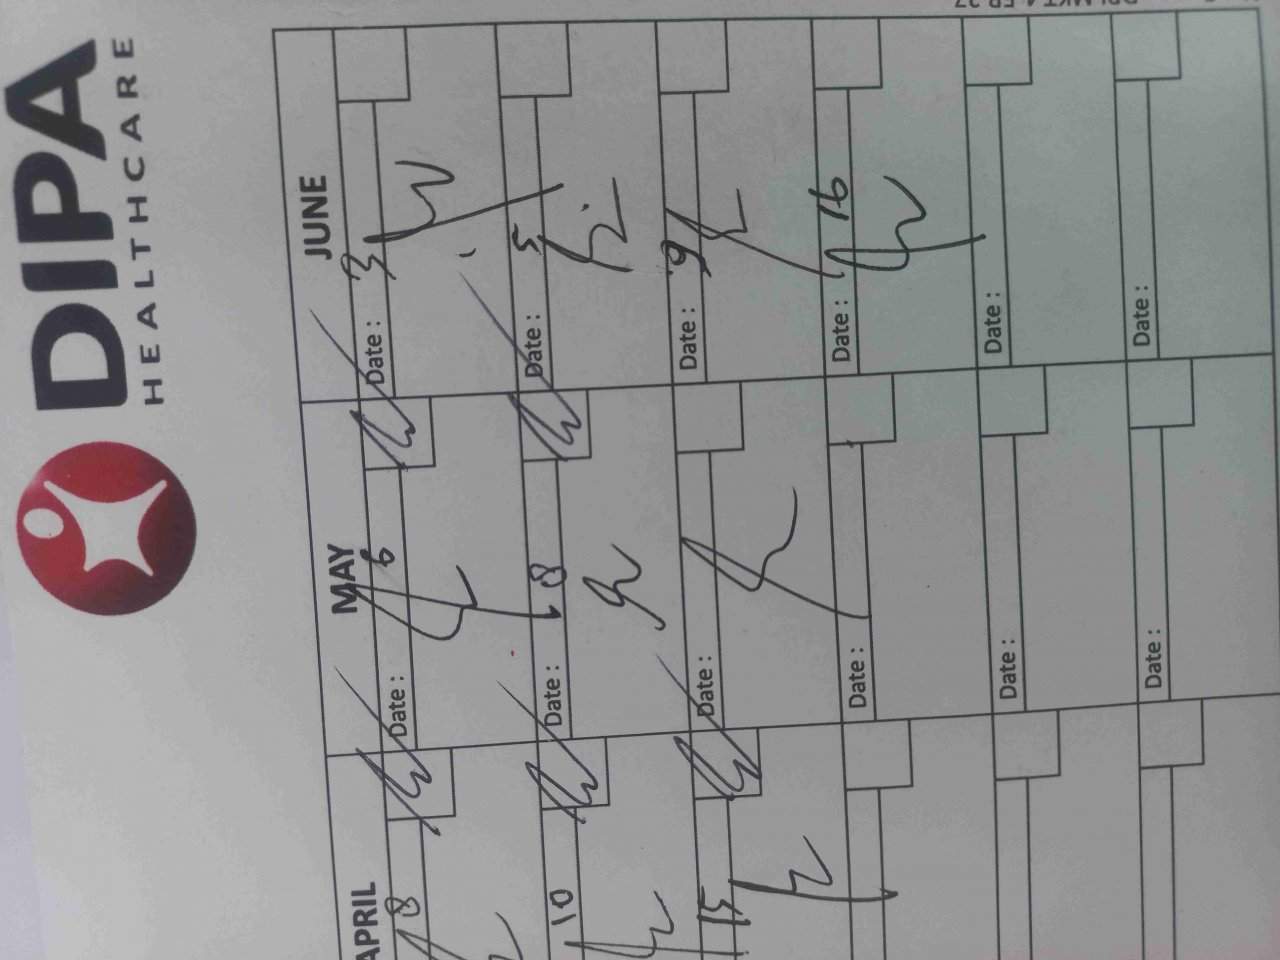 DIPA
HEALTHCARE
APRIL
8
10
15
MAY
Date : 6
Date : 8
Date :
Date :
Date :
Date :
JUNE
Date : 3
Date : 5
Date : 9
Date : 16
Date :
Date :